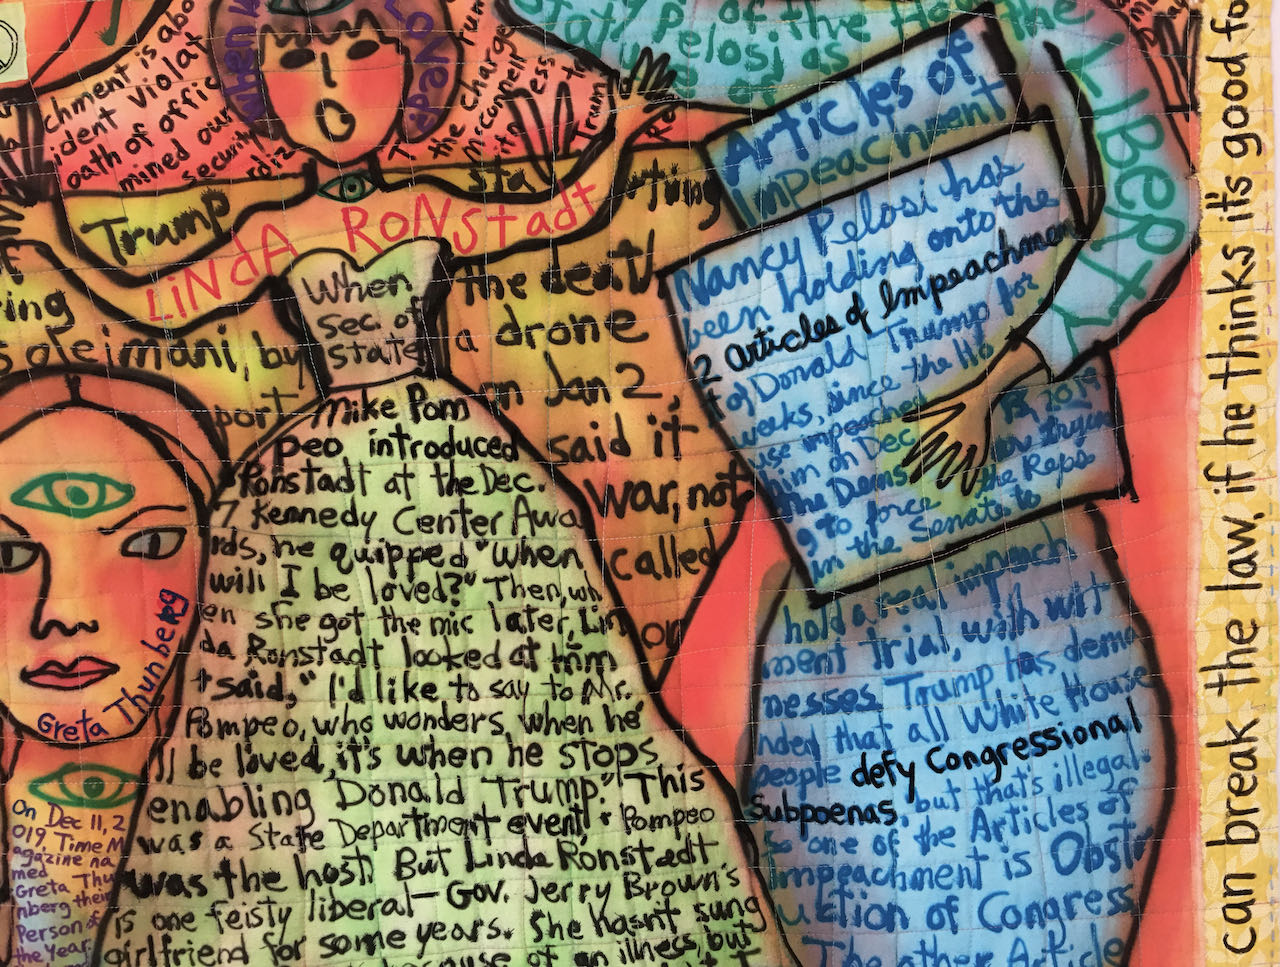 chment is abo
ident Violat
oath of offic
mined our
security
rdiz
When
Loved?
Trum
the charge
McConnell
ess
it in
Trum
staty
of the Ho
the
Pelosi as
LIBERTY
Articles of
Impeachment
Nancy Pelosi has
been holding onto the
2 articles of Impeachmen
t of Donald Trump for
weeks, since the Ho
use impeached
him on Dec
18, 2019
the Dems
now tryin
g to force
the Reps
in the Senate to
hold a real impeach
ment Trial, with wit
nesses. Trump has dema
nded that all White House
people defy Congressional
Subpoenas, but that's illegal.
So one of the Articles of
Impeachment is Obstr
uction of Congress
The other Article
Trump
sta
rting
LiNdA RoNstadt
ring
the death
oleimani, by
a drone
port
n Jan 2,
said it
war, not
called
on
When
sec. of
state
Mike Pom
peo introduced
Ronstadt at the Dec.
7 Kennedy Center Awa
rds, he quipped "when
will I be loved?" Then, wh
en she got the mic later, Lin
da Ronstadt looked at him
+ said, "I'd like to say to Mr.
Pompeo, who wonders, when he'
ll be loved, it's when he stops
enabling Donald Trump." This
was a State Department event! + Pompeo
was the host. But Linda Ronstadt
is one feisty liberal— Gov. Jerry Brown's
girlfriend for some years. She hasn't sung
because of an illness, but
Greta Thunberg
On Dec 11, 2
019, Time M
agazine na
med
Greta Thu
nberg their
Person of
the Year.
can break the law, if he thinks it's good fo